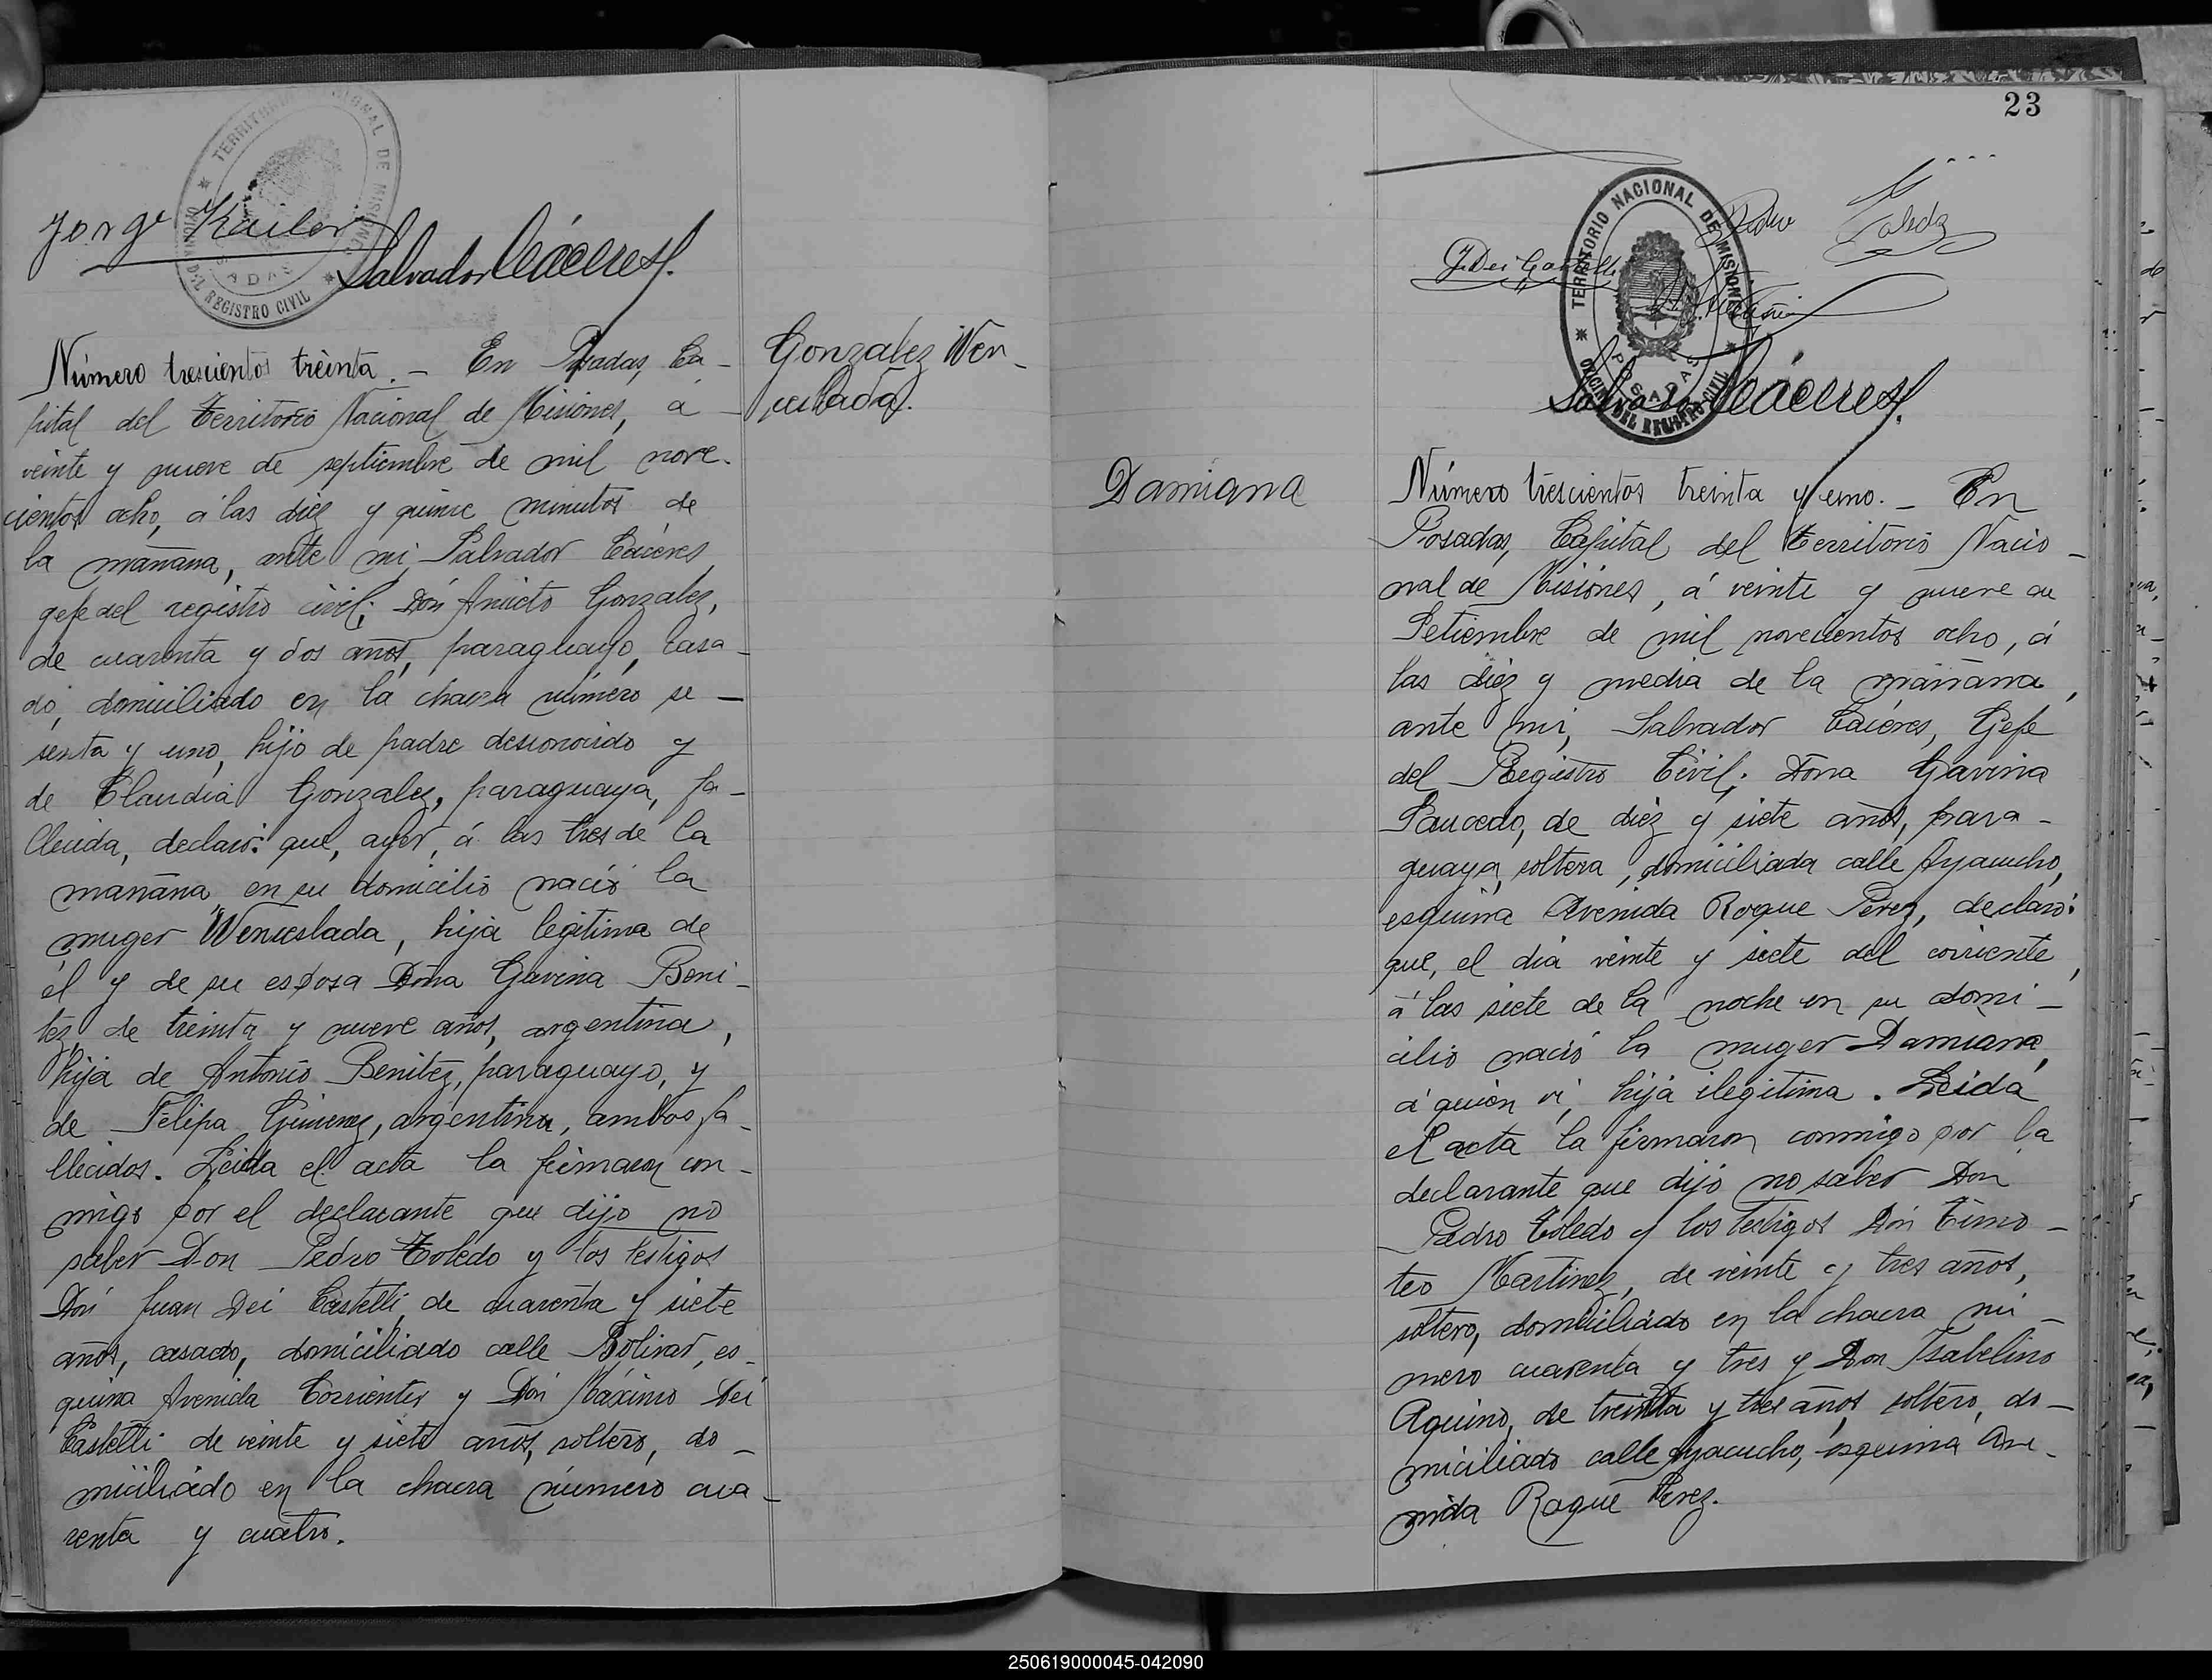 TERRITORIO NACIONAL DE MISIONES
OFICINA DEL REGISTRO CIVIL
POSADAS
Jorge Kailer
Salvador Cáceres
Número trescientos treinta. - En Posadas, Ca-
pital del Territorio Nacional de Misiones, á
veinte y nueve de septiembre de mil nove-
cientos ocho, á las diez y quince minutos de
la mañana, ante mi, Salvador Cáceres,
gefe del registro civil; Don Aniceto Gonzalez,
de cuarenta y dos años, paraguayo, casa-
do, domiciliado en la chacra número se-
senta y uno, hijo de padre desconocido y
de Claudia Gonzalez, paraguaya, fa-
llecida, declaró: que, ayer, á las tres de la
mañana, en su domicilio nació la
muger Wenceslada, hija legitima de
él y de su esposa Doña Gavina Beni-
tez, de treinta y nueve años, argentina,
hija de Antonio Benitez, paraguayo, y
de Felipa Gimenez, argentina, ambos fa-
llecidos. Leida el acta la firmaron con-
migo por el declarante que dijo no
saber Don Pedro Toledo y los testigos
Don Juan Dei Castelli, de cuarenta y siete
años, casado, domiciliado calle Bolivar, es-
quina Avenida Corrientes y Don Máximo Dei
Castelli de veinte y siete años, soltero, do-
miciliado en la chacra número cua-
renta y cuatro.
Gonzalez Wen-
ceslada.
23
Pedro Toledo
J. Dei Castelli
TERRITORIO NACIONAL DE MISIONES
OFICINA DEL REGISTRO CIVIL
POSADAS
Salvador Cáceres
Damiana
Número trescientos treinta y uno. - En
Posadas, Capital del Territorio Nacio-
nal de Misiones, á veinte y nueve de
Setiembre de mil novecientos ocho, á
las diez y media de la mañana,
ante mi, Salvador Cáceres, Gefe
del Registro Civil; Doña Gavina
Saucedo, de diez y siete años, para-
guaya, soltera, domiciliada calle Ayacucho,
esquina Avenida Roque Perez, declaró:
que, el dia veinte y siete del corriente,
á las siete de la noche en su domi-
cilio nació la muger Damiana,
á quien vi, hija ilegitima. Leida
el acta la firmaron conmigo por la
declarante que dijo no saber Don
Pedro Toledo y los testigos Don Timo-
teo Martinez, de veinte y tres años,
soltero, domiciliado en la chacra nú-
mero cuarenta y tres y Don Isabelino
Aquino, de treinta y tres años, soltero, do-
miciliado calle Ayacucho, esquina Ave-
nida Roque Perez.
250619000045-042090